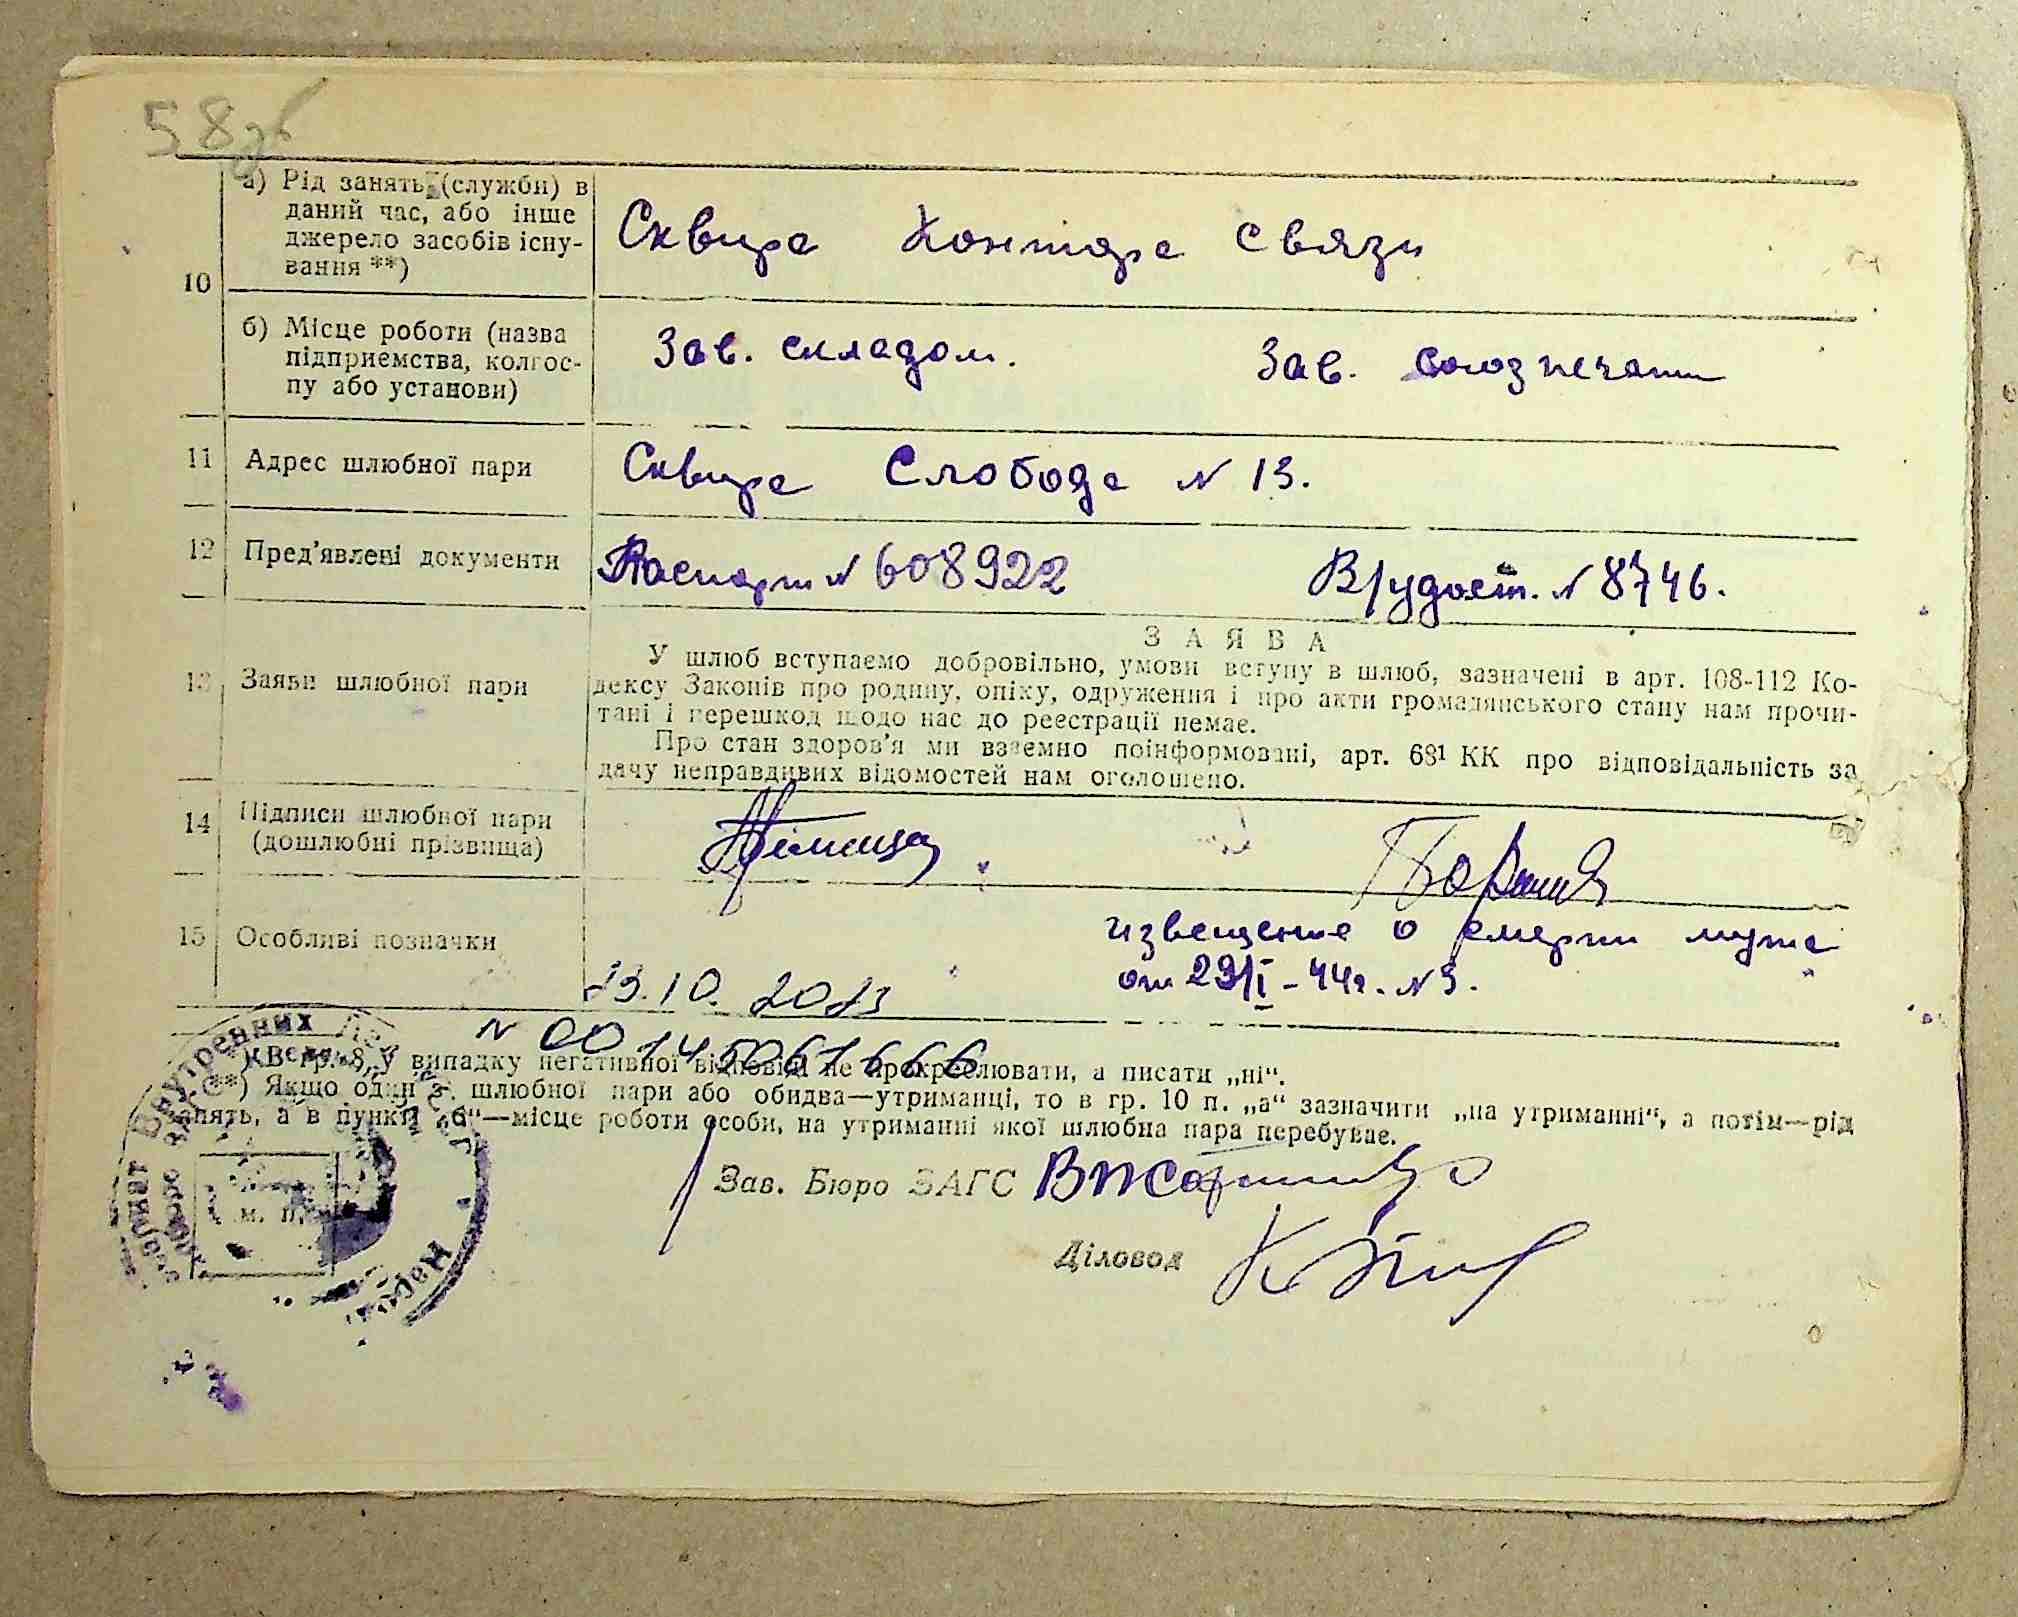 58 об
10
а) Рід занять (служби) в
даний час, або інше
джерело засобів існу-
вання **)
Сквира Контора связи
б) Місце роботи (назва
підприємства, колгос-
пу або установи)
Зав. складом. Зав. союзпечати
11 Адрес шлюбної пари Сквира Слобода N 13.
12 Пред'явлені документи Паспорт N 608922 Вр/удост. N 8746.
13 Заяви шлюбної пари
ЗАЯВА
У шлюб вступаємо добровільно, умови вступу в шлюб, зазначені в арт. 108-112 Ко-
дексу Законів про родину, опіку, одруження і про акти громадянського стану нам прочи-
тані і перешкод щодо нас до реєстрації немає.
Про стан здоров'я ми взаємно поінформовані, арт. 68¹ КК про відповідальність за
дачу неправдивих відомостей нам оголошено.
14 Підписи шлюбної пари
(дошлюбні прізвища)
15 Особливі позначки
извещение о смерти мужа
от 29/I-44г. N 3.
19.10.2013
N 00145061666
*) В гр. 8 у випадку негативної відповіді не прокреслювати, а писати „ні“.
**) Якщо один з шлюбної пари або обидва—утриманці, то в гр. 10 п. „а“ зазначити „на утриманні“, а потім—рід
занять, а в пункті „б“—місце роботи особи, на утриманні якої шлюбна пара перебуває.
Зав. Бюро ЗАГС
Діловод
м. п.
Внутренних